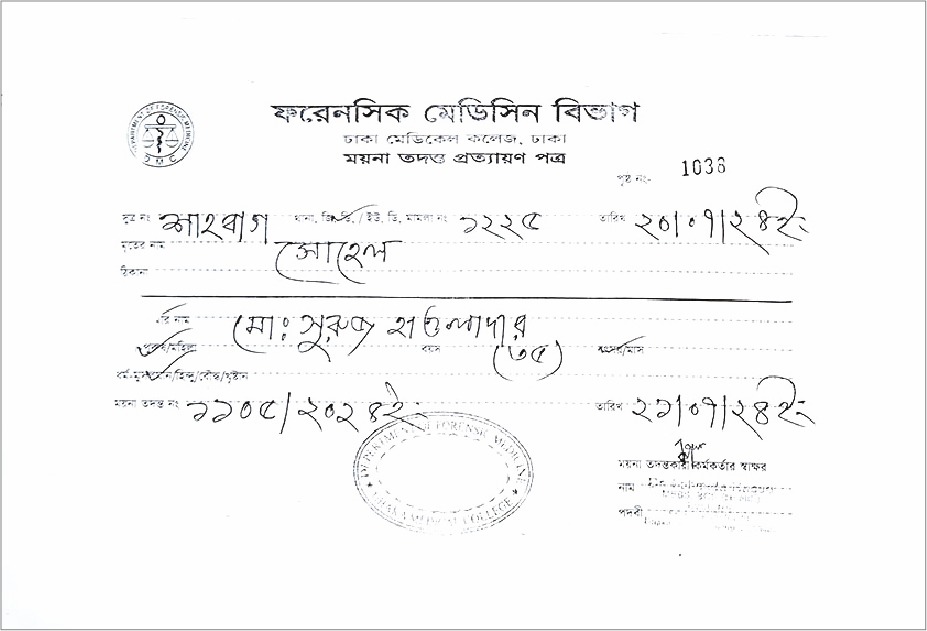 ফরেনসিক মেডিসিন বিভাগ
ঢাকা মেডিকেল কলেজ, ঢাকা
ময়না তদন্ত প্রত্যায়ণ পত্র
পৃষ্ঠ নং- 1036
সূত্র নং শাহবাগ থানা, জি, ডি, / ইউ, ডি, মামলা নং ১২২৫ তারিখ ২০/০৭/২৪ইং
মৃতের নাম সোহেল
ঠিকানা
নাম মোঃ সুরুজ হাওলাদার
পুরুষ/মহিলা বয়স (৩৫) বৎসর/মাস
ধর্ম-মুসলমান/হিন্দু/বৌদ্ধ/খৃষ্টান
ময়না তদন্ত নং ১১০৫/২০২৪ইং তারিখ ২১/০৭/২৪ইং
DEPARTMENT OF FORENSIC MEDICINE
DHAKA MEDICAL COLLEGE
ময়না তদন্তকারী কর্মকর্তার স্বাক্ষর
নাম
পদবী